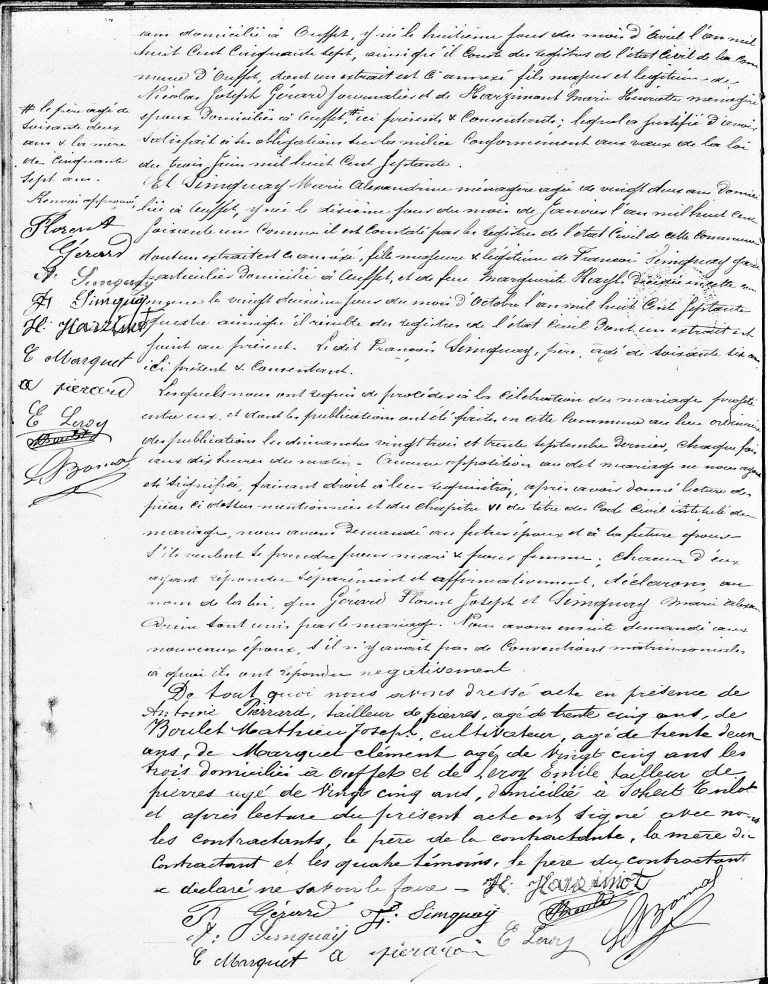 ans domicilié à Ouffet, y né le huitième jour du mois d'avril l'an mil
huit Cent Cinquante sept, ainsi qu'il conste des registres de l'état Civil de la Com
mune d'Ouffet, dont un extrait est Ci annexé, fils majeur et légitime de
Nicolas Joseph Gérard Journalier et de Harzimont Marie Henriette ménagère
époux Domiciliés à Ouffet,# ici présents & Consentants; lequel a justifié d'avoir
satisfait à ses obligations sur la milice Conformément aux vœux de la loi
du trois Juin mil huit Cent Septante.
# le père agé de
soixante deux
ans & la mère
de cinquante
sept ans.
Renvoi approuvé
Florent
Gérard
A: Simquaÿ
F: Simquaÿ
H: Harzimot
C Marquet
a pierard
E Leroy
Boulet
Et Simquay Marie Alexandrine ménagère agée de vingt deux ans Domici
liée à Ouffet, y née le dixième jour du mois de Janvier l'an mil huit Cent
soixante un Comme il est Constaté par les registres de l'état Civil de cette Commune
dont un extrait est ci annexé, fille majeure & légitime de François Simquay
particulier Domicilié à Ouffet, et de feue Marguerite Décédée en cette
le vingt deuxième jour du mois d'Octobre l'an mil huit Cent Septante
quatre ainsi qu'il résulte des registres de l'état Civil Dont un extrait est
joint au présent. Le dit François Simquay, père, agé de soixante six ans
ici présent & Consentant.
Lesquels nous ont requis de procéder à la Célébration du mariage projeté
entre eux, et dont les publications ont été faites en cette Commune au lieu ordinaire
des publications les dimanches vingt trois et trente Septembre dernier, chaque fois
aux dix heures du matin. Aucune opposition au dit mariage ne nous ayant
été signifiée, faisant droit à leur réquisition, après avoir donné lecture des
pièces ci dessus mentionnées et du chapitre VI du titre du Code Civil intitulé du
mariage, nous avons Demandé au futur époux et à la future épouse
s'ils veulent se prendre pour mari & pour femme; Chacun d'eux
ayant répondu séparément et affirmativement, déclarons, au
nom de la loi, que Gérard Florent Joseph et Simquay Marie Alexan
drine sont unis par le mariage. Nous avons ensuite demandé aux
nouveaux époux, s'il n'y avait pas de Conventions matrimoniales
à quoi ils ont répondu négativement.
De tout quoi nous avons dressé acte en présence de
Antoine Pierrard, tailleur de pierres, agé de trente cinq ans, de
Boulet Mathieu Joseph, cultivateur, agé de trente deux
ans, de Marquet clément agé de vingt cinq ans les
trois domiciliés à Ouffet et de Leroy Emile tailleur de
pierres agé de vingt cinq ans, domicilié à Soheit Tinlot
et après lecture du présent acte ont signé avec nous
les contractants, le père de la contractante, la mère du
Contractant et les quatre témoins, le père du contractant
a déclaré ne savoir le faire - H: Harzimot
F. Gérard F: Simquaÿ Boulet
A: Simquaÿ E Leroy
C Marquet a pierard